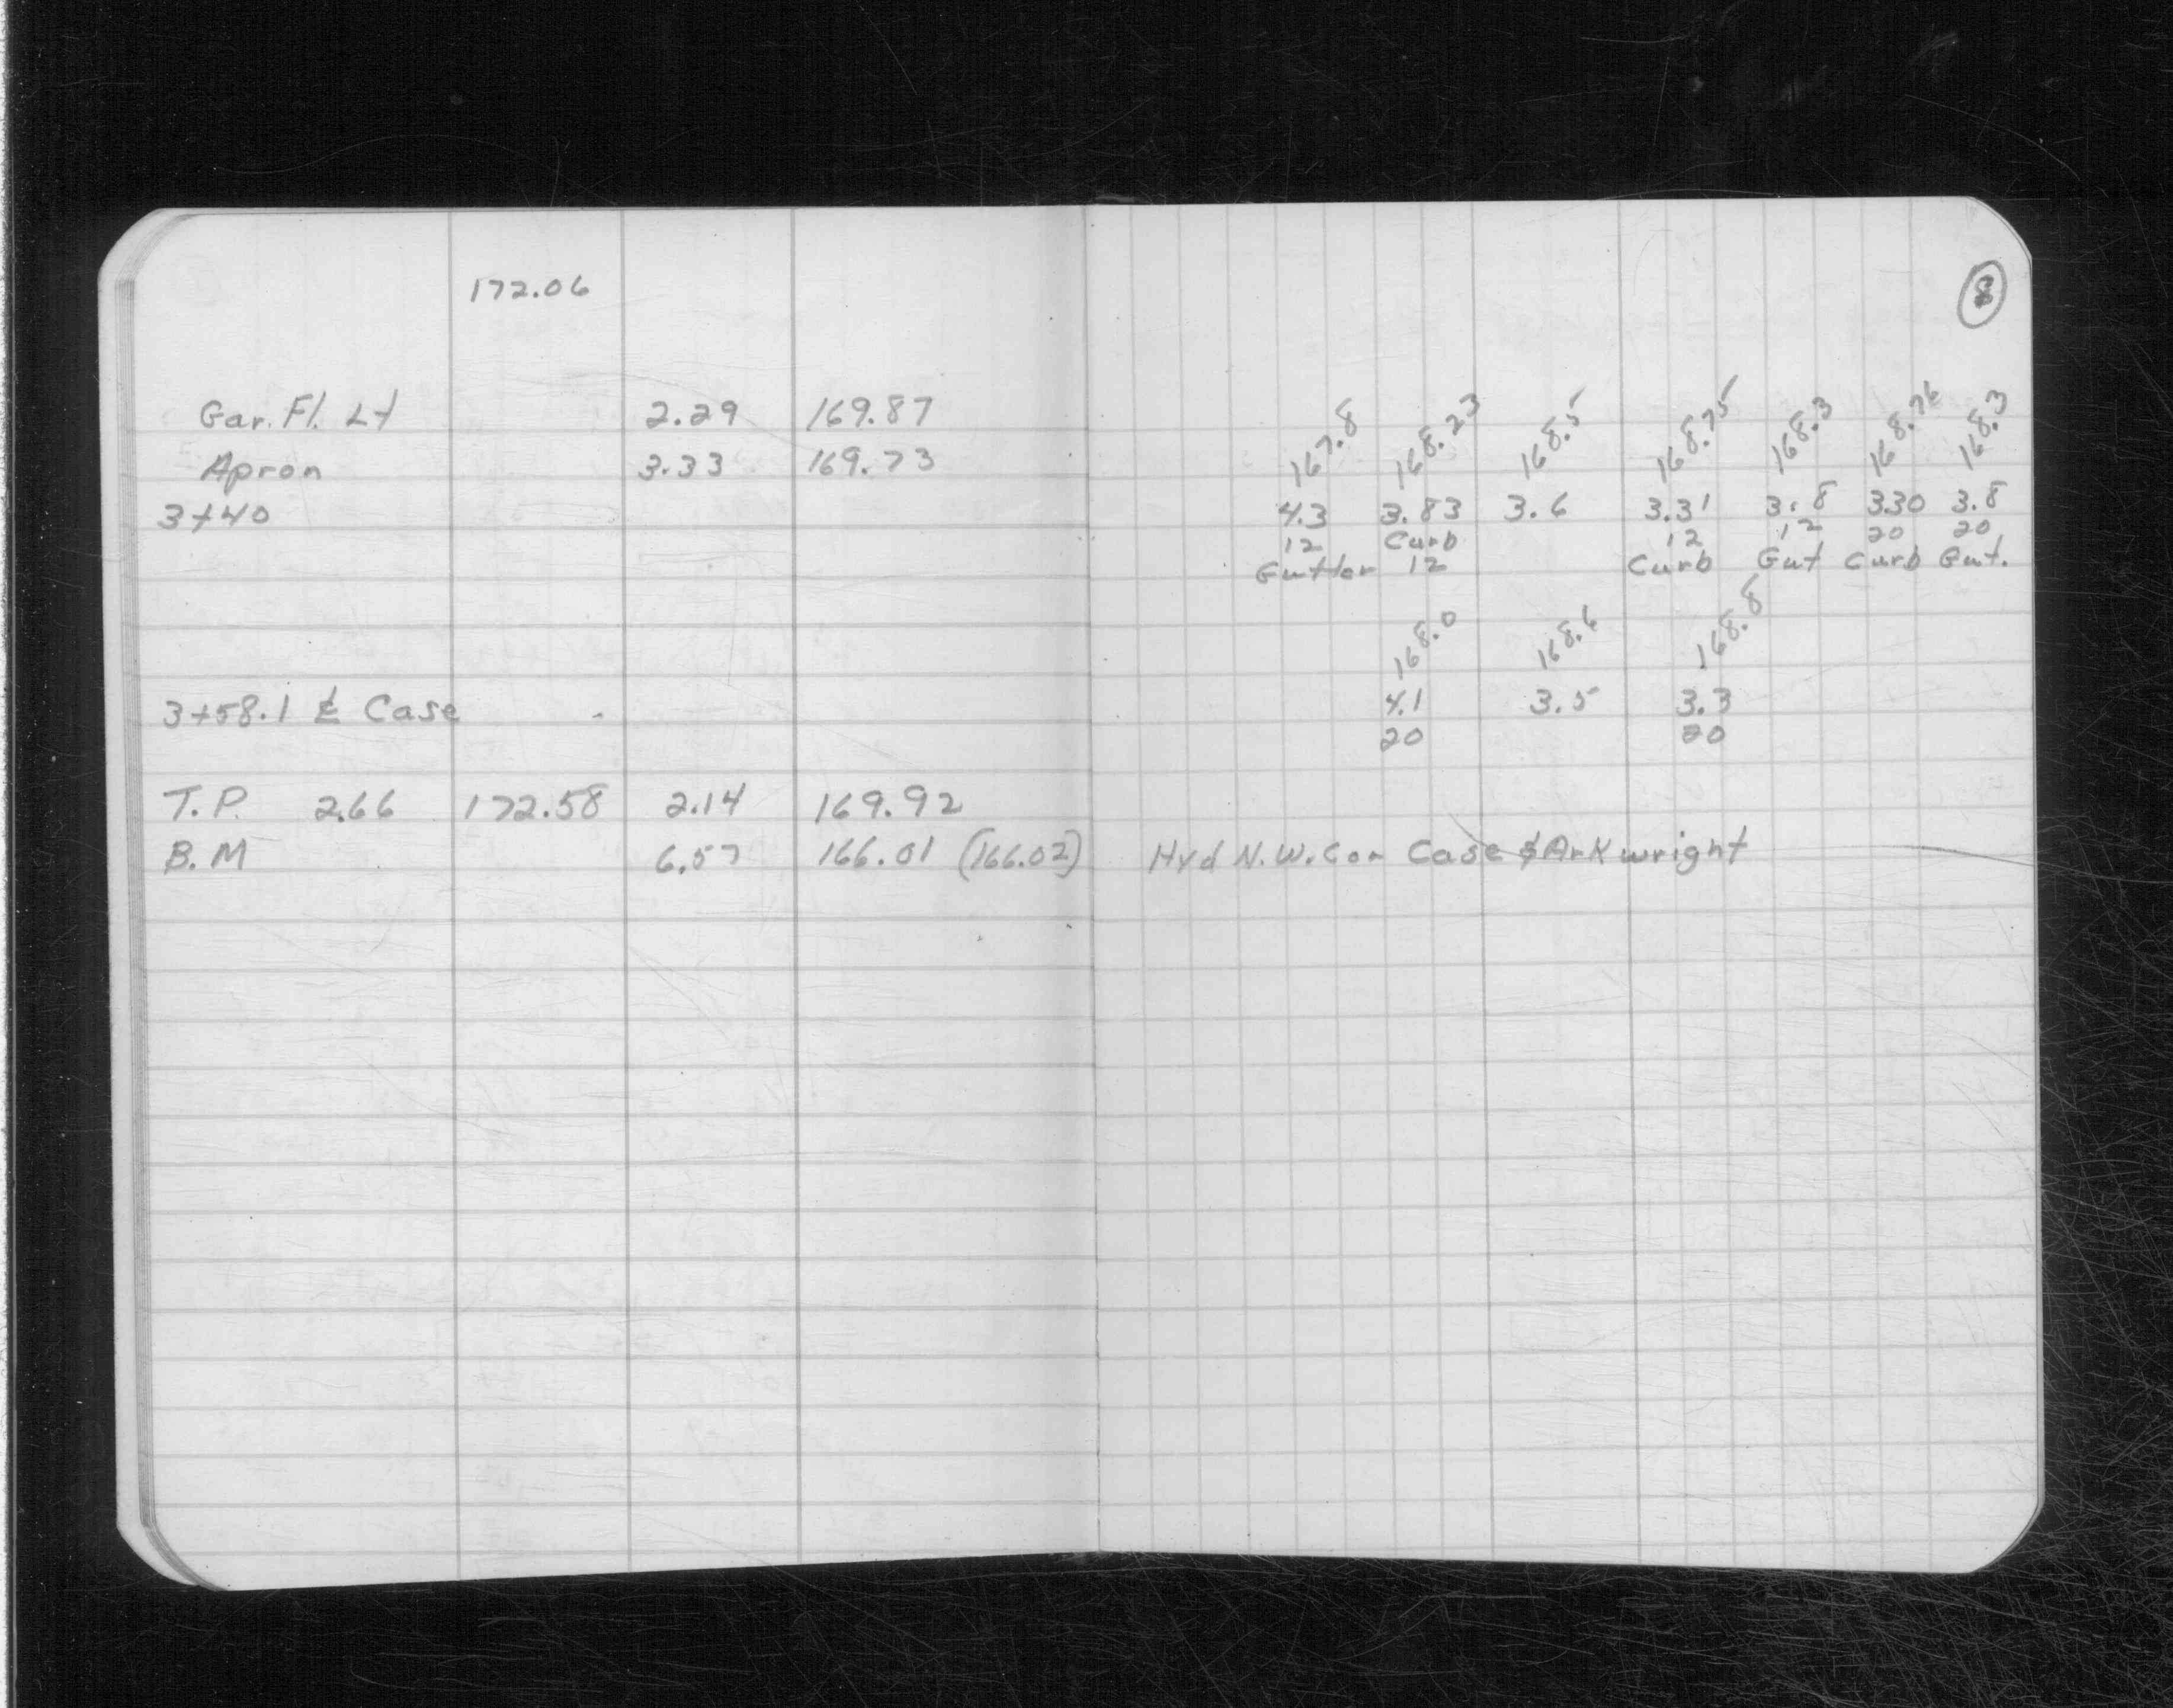 172.06
8
Gar. Fl. Lt 2.29 169.87
Apron 3.33 169.73
167.8 168.23 168.5 168.75 168.3 168.76 168.3
3+40 4.3 3.83 3.6 3.31 3.8 3.30 3.8
12 Curb 12 12 20 20
Gutter 12 Curb Gut Curb Gut.
168.0 168.6 168.8
3+58.1 ℄ Case 4.1 3.5 3.3
20 20
T.P. 2.66 172.58 2.14 169.92
B.M 6.57 166.01 (166.02) Hyd N.W. Cor Case & Arkwright